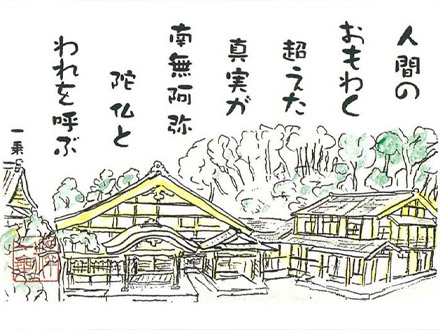 人間の
おもわく
超えた
真実が
南無阿弥
陀仏と
われを呼ぶ
一乗